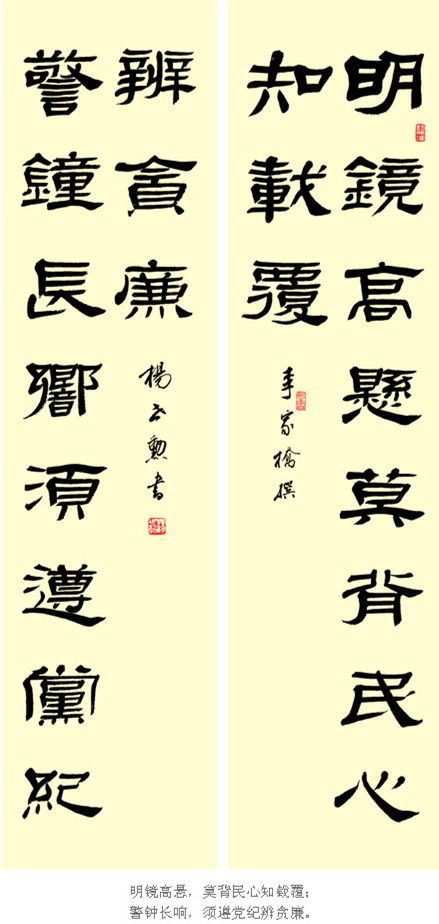 明鏡高懸莫背民心
知載覆
李家橋撰
警鐘長響須遵黨紀
辨貪廉
楊勲書
明镜高悬，莫背民心知载覆；
警钟长响，须遵党纪辨贪廉。